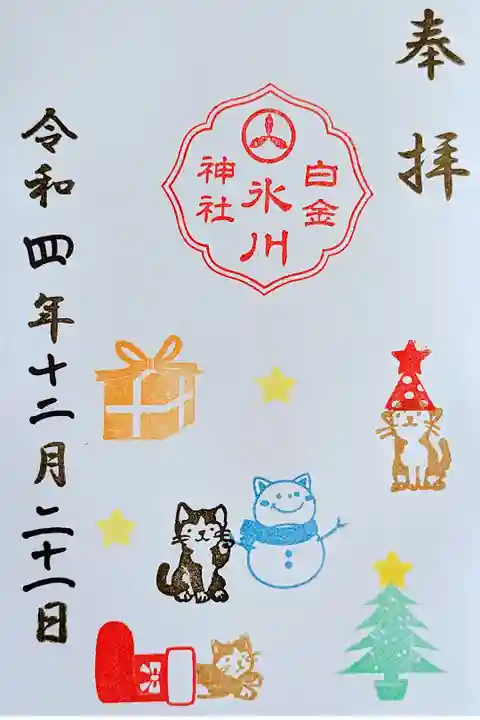 奉拝
白金
氷川
神社
令和四年十二月二十一日